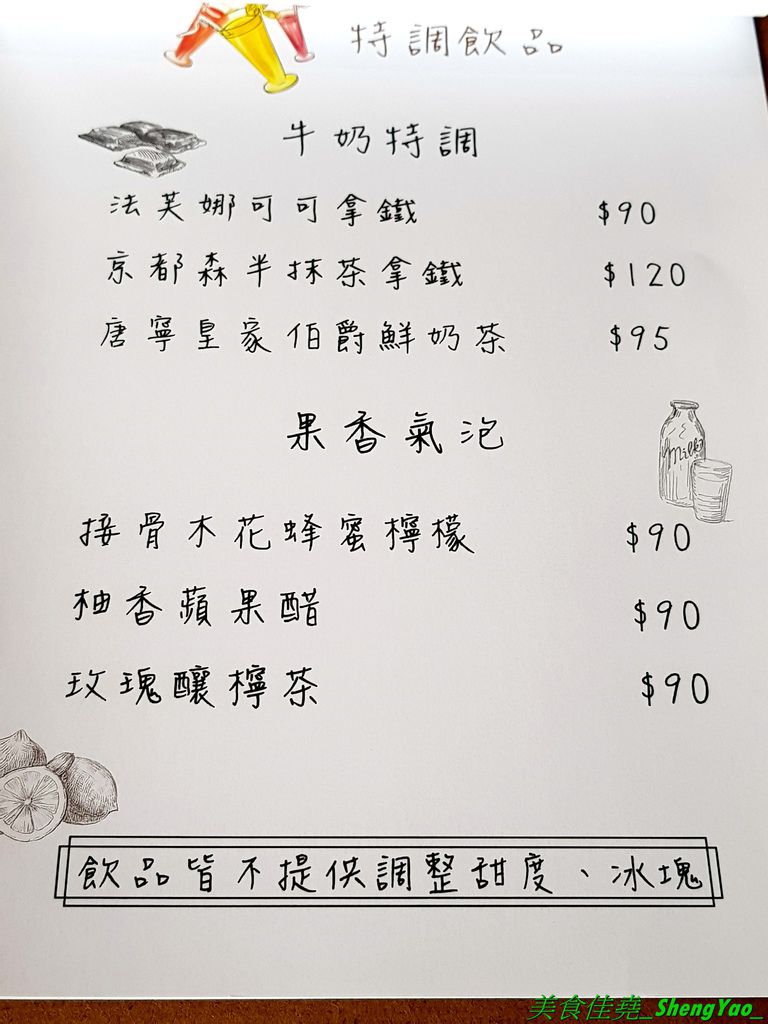 特調飲品
牛奶特調
法芙娜可可拿鐵 $90
京都森半抹茶拿鐵 $120
唐寧皇家伯爵鮮奶茶 $95
果香氣泡
Milk
接骨木花蜂蜜檸檬 $90
柚香蘋果醋 $90
玫瑰釀檸茶 $90
飲品皆不提供調整甜度、冰塊
美食佳堯_ShengYao_